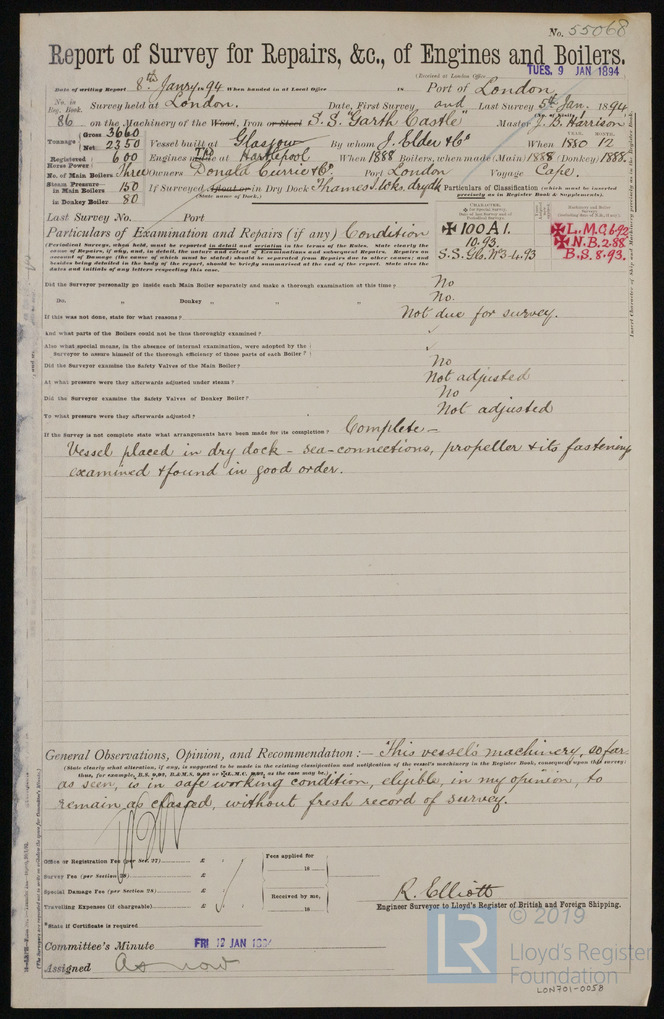 No. 55068
Report of Survey for Repairs, &c., of Engines and Boilers.
(Received at London Office TUES. 9 JAN 1894
Date of writing Report 8th Janry. 94 When handed in at Local Office 18 Port of London
No. in Reg. Book. Survey held at London. Date, First Survey and Last Survey 5th Jan. 1894
86 on the Machinery of the Wood, Iron or Steel S.S. "Garth Castle" Master J. B. Harrison
Tonnage Gross 3660 Net 2350 Vessel built at Glasgow By whom J. Elder & Co When 1880 12
Registered Horse Power 600 Engines made at Hartlepool When 1888 Boilers, when made (Main) 1888 (Donkey) 1888.
No. of Main Boilers Three Owners Donald Currie & Co. Port London Voyage Cape.
Steam Pressure in Main Boilers 150 If Surveyed Afloat or in Dry Dock Thames I. Wks. dry dk
in Donkey Boiler 80 (State name of Dock.)
Particulars of Classification (which must be inserted precisely as in Register Book & Supplements).
Last Survey No. Port
CHARACTER.
✠ 100 A 1.
10.93.
S.S. Gls. No 3-4.93
✠ L.M.C. 6.92
✠ N.B. 2.88
B.S. 8.93.
Particulars of Examination and Repairs (if any) Condition
(Periodical Surveys, when held, must be reported in detail and seriatim in the terms of the Rules. State clearly the
cause of Repairs, if any, and, in detail, the nature and extent of Examinations and subsequent Repairs. Repairs on
account of Damage (the cause of which must be stated) should be separated from Repairs due to other causes; and
besides being detailed in the body of the report, should be briefly summarised at the end of the report. State also the
dates and initials of any letters respecting this case.
Did the Surveyor personally go inside each Main Boiler separately and make a thorough examination at this time? No
Do. " Donkey " " " No.
If this was not done, state for what reasons? Not due for survey.
And what parts of the Boilers could not be thus thoroughly examined? ✓
Also what special means, in the absence of internal examination, were adopted by the
Surveyor to assure himself of the thorough efficiency of those parts of each Boiler? ✓
Did the Surveyor examine the Safety Valves of the Main Boiler? No
At what pressure were they afterwards adjusted under steam? Not adjusted
Did the Surveyor examine the Safety Valves of Donkey Boiler? No
To what pressure were they afterwards adjusted? Not adjusted
If the Survey is not complete state what arrangements have been made for its completion? Complete –
Vessel placed in dry dock – sea-connections, propeller & its fastenings
examined & found in good order.
General Observations, Opinion, and Recommendation :— This vessel's machinery, so far
(State clearly what alteration, if any, is suggested to be made in the existing classification and notification of the vessel's machinery in the Register Book, consequent upon this survey:
thus, for example, B.S. 9,93, B.&M.S. 9,93 or ✠L.M.C. 9,93, as the case may be.)
as seen, is in safe working condition, eligible, in my opinion, to
remain as classed, without fresh record of survey.
Office or Registration Fee (per Sec. 27) £
Survey Fee (per Section 28) £
Special Damage Fee (per Section 28) £
Travelling Expenses (if chargeable) £
Fees applied for
18
Received by me,
18
*State if Certificate is required
R. Elliott
Engineer Surveyor to Lloyd's Register of British and Foreign Shipping.
Committee's Minute FRI 12 JAN 1894
Assigned As now
LR © 2019
Lloyd's Register
Foundation
LON701-0058